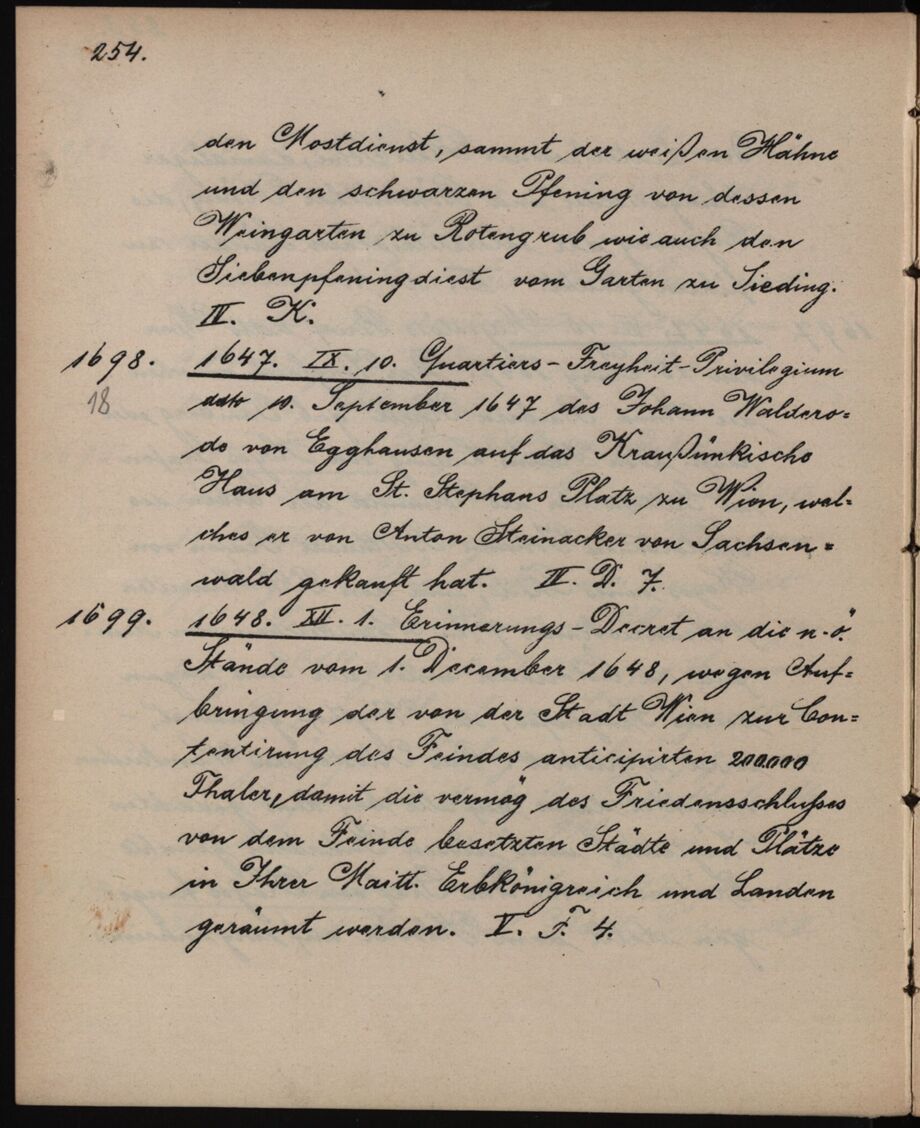 254.
den Mostdienst, sammt der weißen Hähne
und den schwarzen Pfening von dessen
Weingarten zu Rotengrub wie auch den
Siebenpfeningdiest vom Garten zu Sieding.
IV. K.
1698. 1647. IX. 10. Quartiers-Freyheit-Privilegium
18 ddto 10. September 1647 des Johann Waldero=
de von Egghausen auf das Kraußünkische
Haus am St. Stephans Platz zu Wien, wel=
ches er von Anton Steinacker von Sachsen=
wald gekauft hat. II. D. 7.
1699. 1648. XII. 1. Erinnerungs-Decret an die n.ö.
Stände vom 1. December 1648, wegen Auf=
bringung der von der Stadt Wien zur Con=
tentirung des Feindes anticipirten 200.000
Thaler, damit die vermög des Friedensschlußes
von dem Feinde besetzten Städte und Plätze
in Ihrer Maitt. Erbkönigreich und Landen
geräumt werden. V. F. 4.